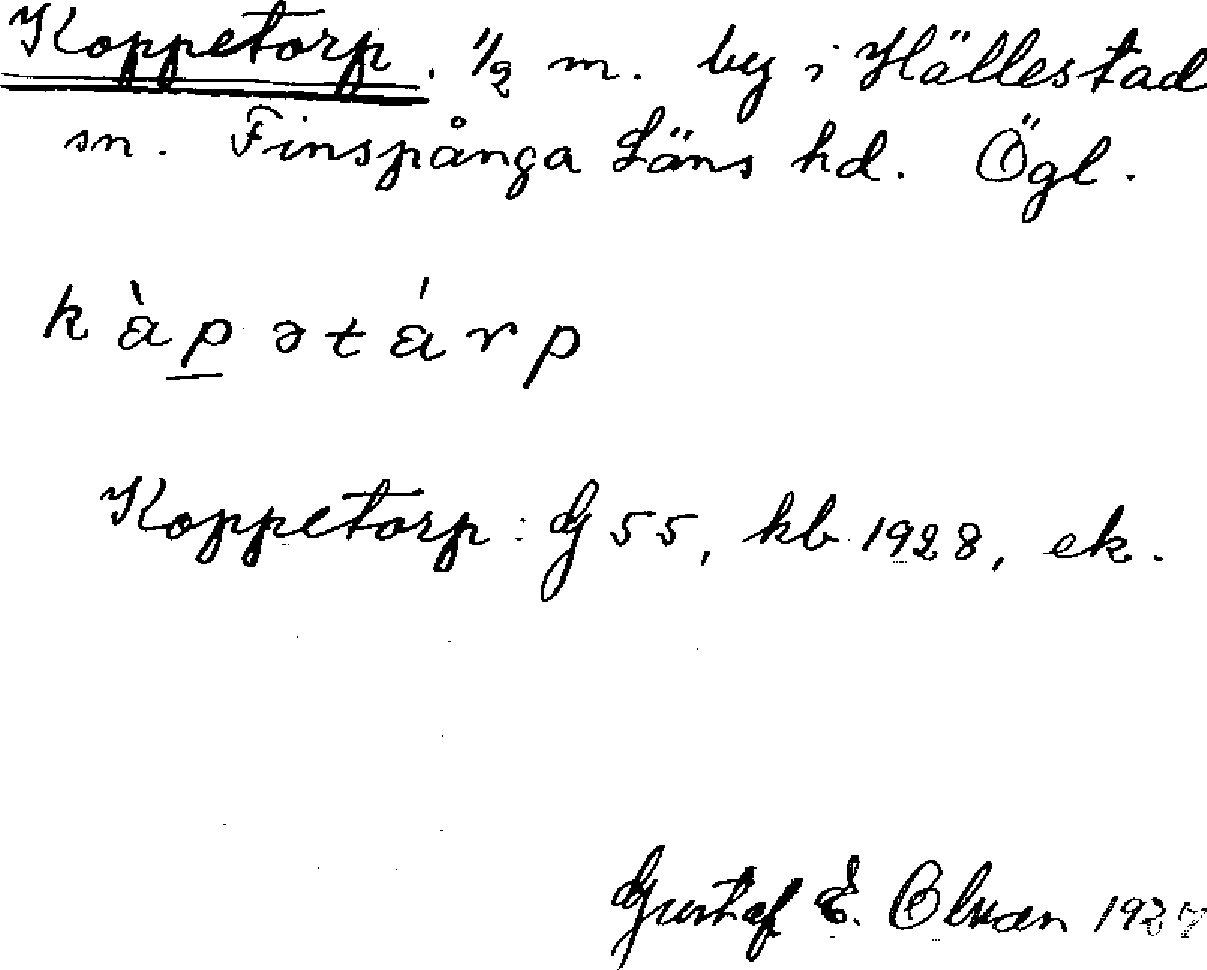 Koppetorp. 1/2 m. by i Hällestad
sn. Finspånga Läns hd. Ögl.
kàpətárp
Koppetorp: G 55, kb 1928, ek.
Gustaf E. Olsson